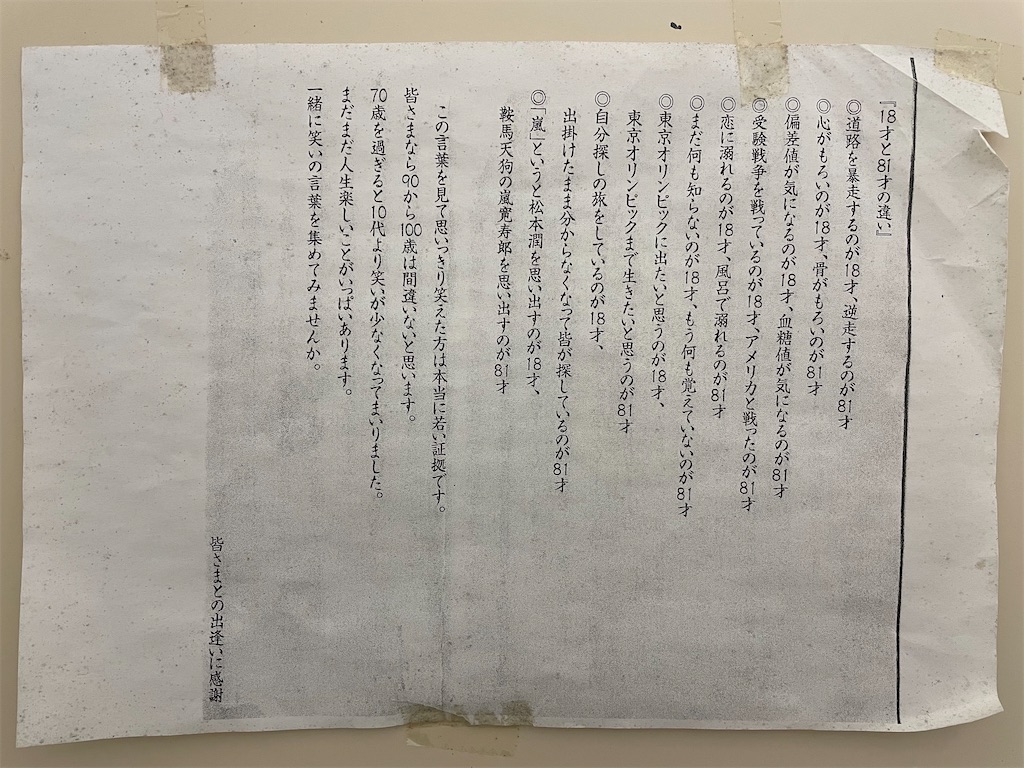 『18才と81才の違い』
◎道路を暴走するのが18才、逆走するのが81才
◎心がもろいのが18才、骨がもろいのが81才
◎偏差値が気になるのが18才、血糖値が気になるのが81才
◎受験戦争を戦っているのが18才、アメリカと戦ったのが81才
◎恋に溺れるのが18才、風呂で溺れるのが81才
◎まだ何も知らないのが18才、もう何も覚えていないのが81才
◎東京オリンピックに出たいと思うのが18才、
東京オリンピックまで生きたいと思うのが81才
◎自分探しの旅をしているのが18才、
出掛けたまま分からなくなって皆が探しているのが81才
◎「嵐」というと松本潤を思い出すのが18才、
鞍馬天狗の嵐寛寿郎を思い出すのが81才
この言葉を見て思いっきり笑えた方は本当に若い証拠です。
皆さまなら90から100歳は間違いないと思います。
70歳を過ぎると10代より笑いが少なくなってまいりました。
まだまだ人生楽しいことがいっぱいあります。
一緒に笑いの言葉を集めてみませんか。
皆さまとの出逢いに感謝